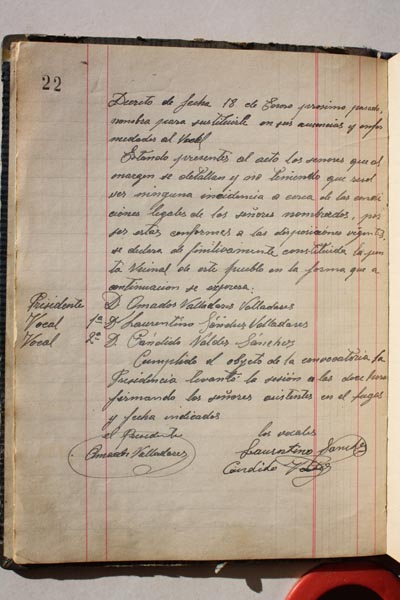 22
Decreto de fecha 18 de Enero proximo pasado,
nombra para sustituirle en sus ausencias y enfer
medades al Vocal
Estando presentes al acto los señores que al
margen se detallan y no teniendo que resol
ver ninguna incidencia a cerca de las condi
ciones legales de los señores nombrados, por
ser estas conformes a las disposiciones vigentes,
se declara definitivamente constituida la jun
ta Vecinal de este pueblo en la forma que a
continuacion se expresa:
Presidente D. Amador Valladares Valladares
Vocal 1º D. Laurentino Sánchez Valladares
Vocal 2º D. Cándido Valdés Sánchez
Cumplido el objeto de la convocatoria, la
Presidencia levantó la sesión a las doce horas
firmando los señores asistentes en el lugar
y fecha indicados
el Presidente los vocales
Amador Valladares Laurentino Sánchez
Candido